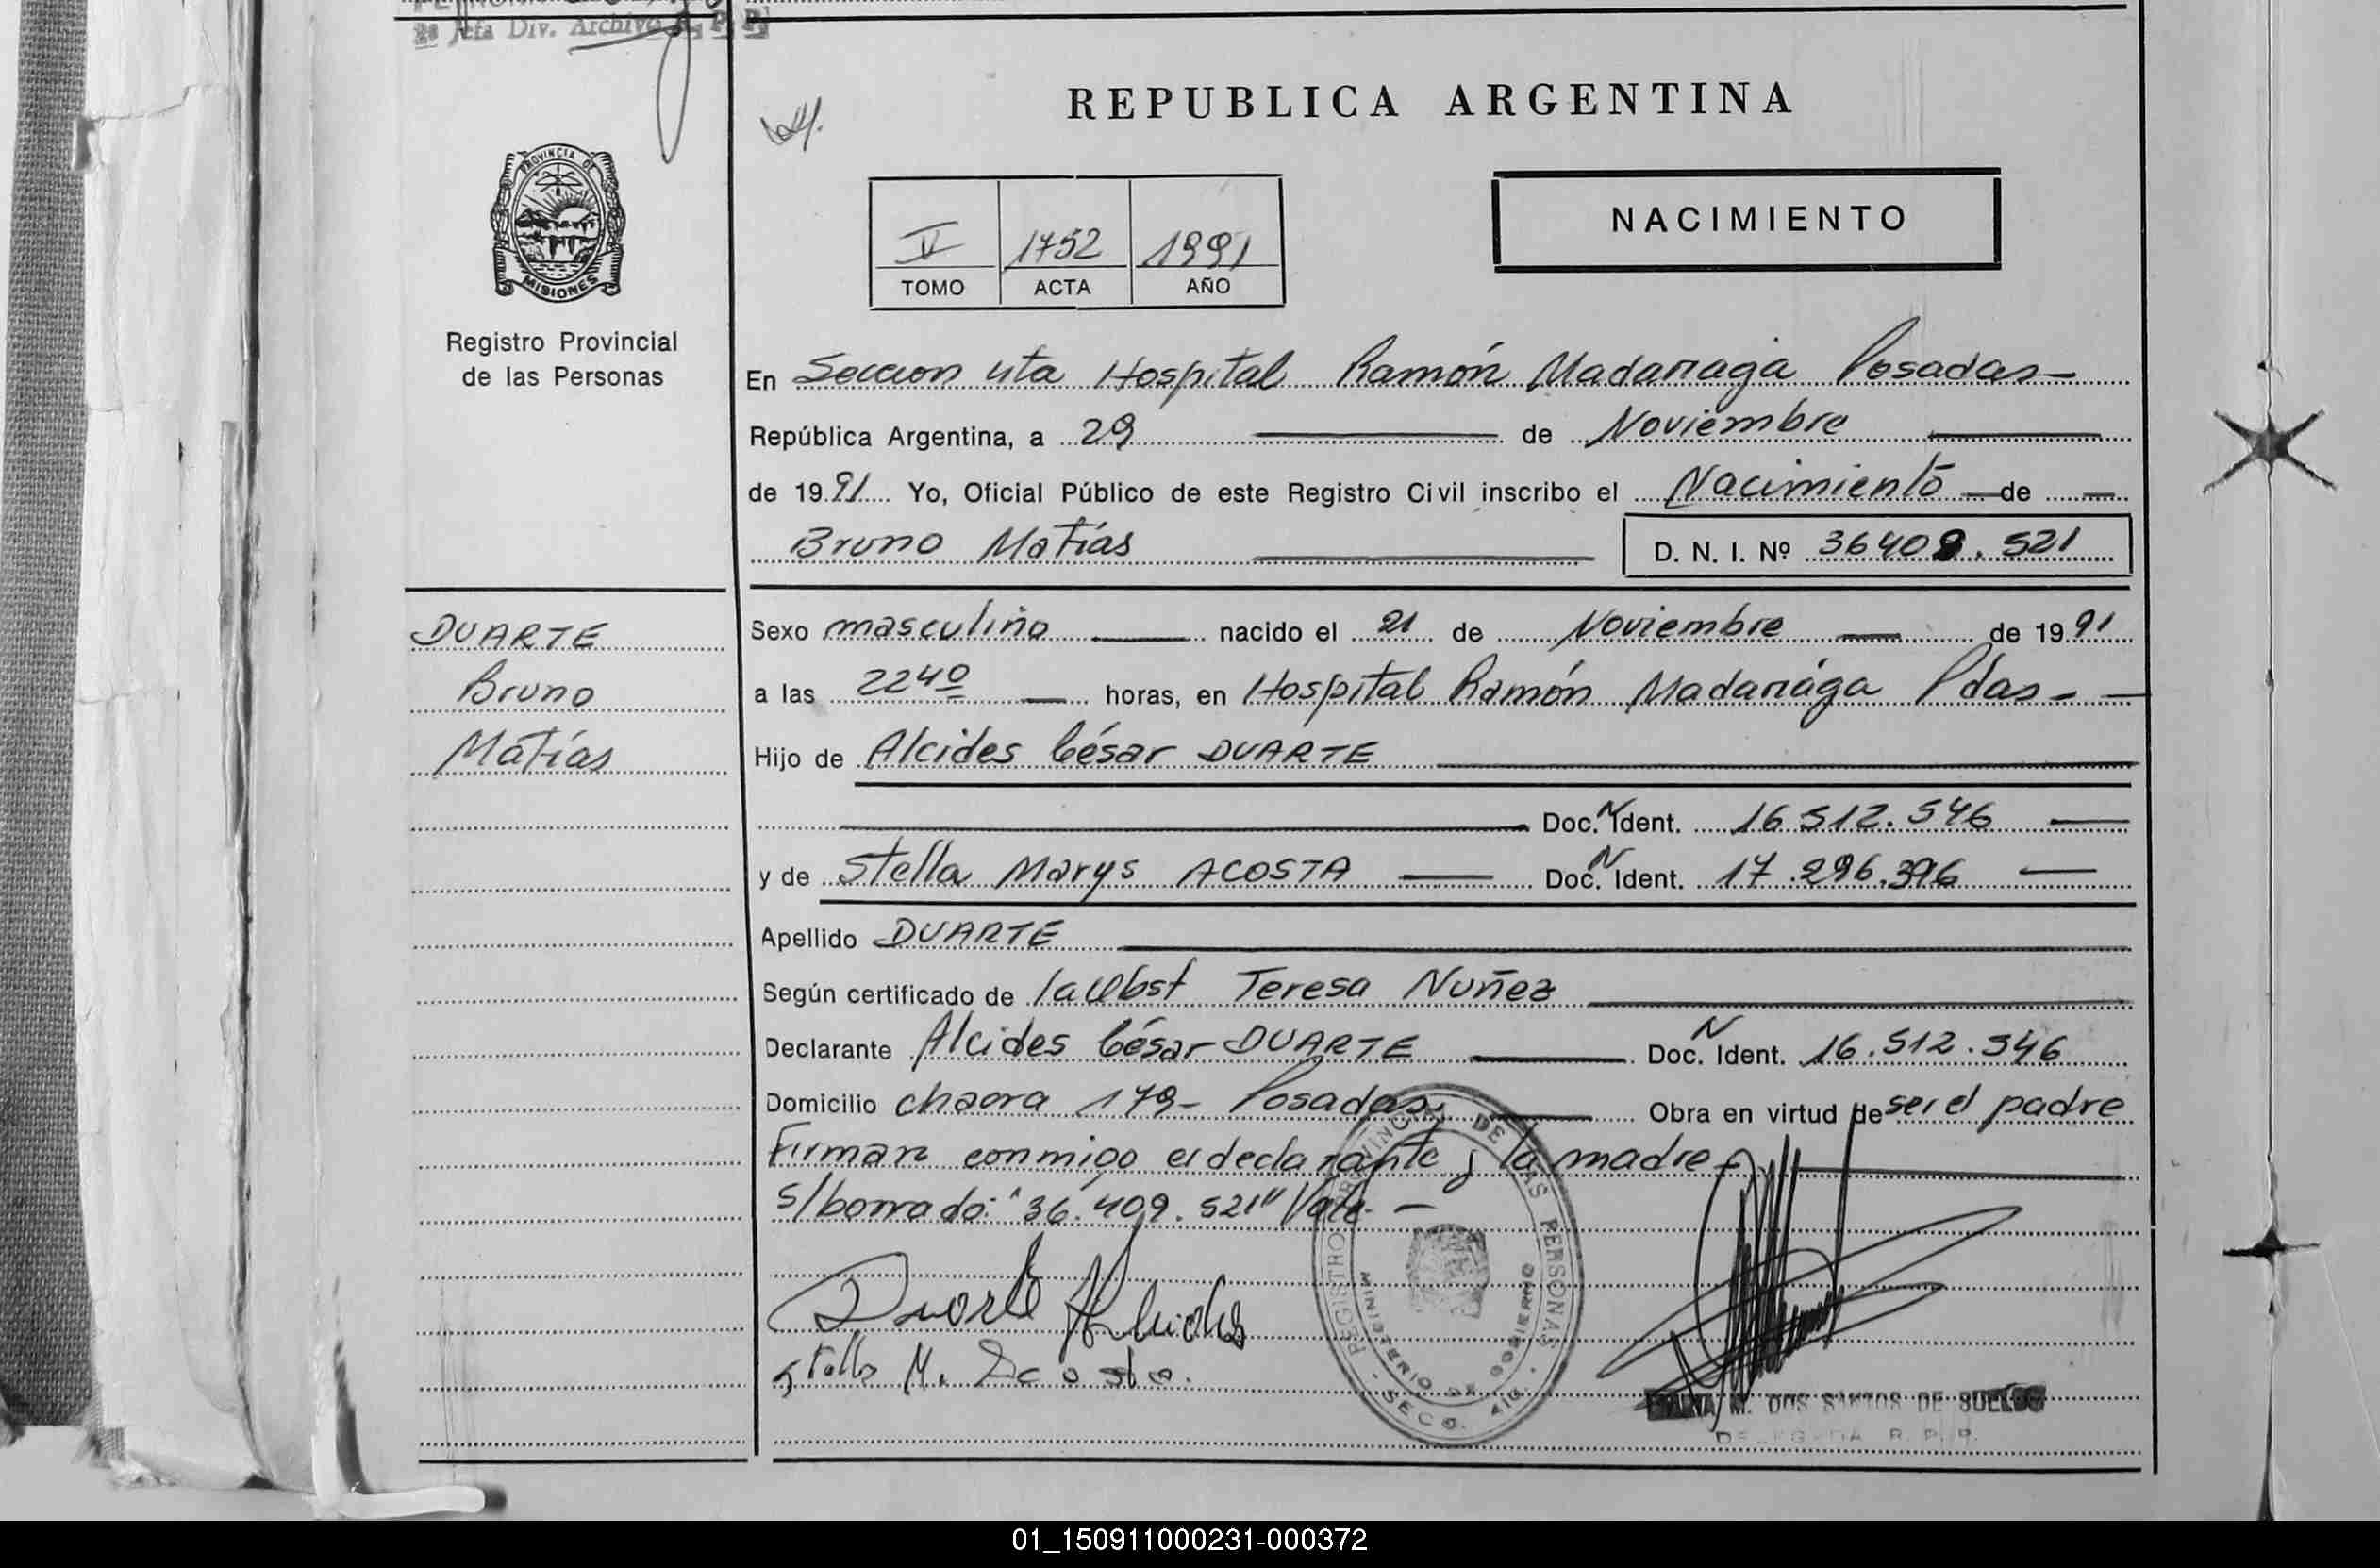 2ª Jefa Div. Archivo R. P. P.
REPUBLICA ARGENTINA
PROVINCIA DE
MISIONES
Registro Provincial
de las Personas
V 1752 1991
TOMO ACTA AÑO
NACIMIENTO
En Seccion 4ta Hospital Ramón Madariaga Posadas
República Argentina, a 29 de Noviembre
de 1991 Yo, Oficial Público de este Registro Civil inscribo el Nacimiento de
Bruno Matías D. N. I. Nº 36409.521
DUARTE
Bruno
Matías
Sexo masculino nacido el 21 de Noviembre de 1991
a las 2240 horas, en Hospital Ramón Madariaga Pdas
Hijo de Alcides César DUARTE
Doc. N Ident. 16.512.546
y de Stella Marys ACOSTA Doc. N Ident. 17.296.396
Apellido DUARTE
Según certificado de Teresa Nuñez
Declarante Alcides César DUARTE Doc. N Ident. 16.512.546
Domicilio chacra 179- Posadas Obra en virtud de ser el padre
Firman conmigo el declarante y la madre
s/borrado: "36.409.521" Vale. —
Duarte Alcides
Stella M. Acosta.
REGISTRO PROVINCIAL DE LAS PERSONAS
MINISTERIO DE GOBIERNO
SECC. 4ta.
M. DOS SANTOS DE
DELEGADA R. P. P.
01_150911000231-000372